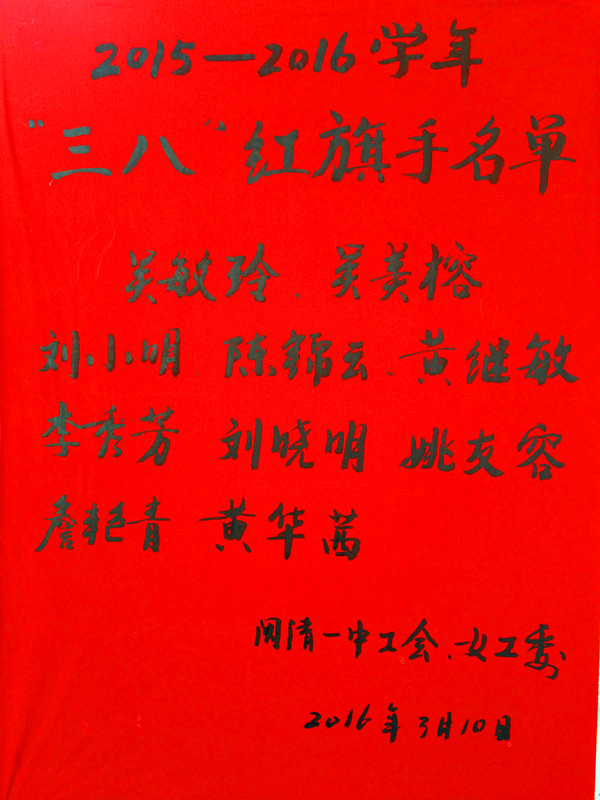 2015—2016学年
“三八”红旗手名单
吴敏玲、吴美榕
刘小明、陈锦云、黄继敏
李秀芳 刘晓明 姚友容
詹艳青 黄华茜
闽清一中工会、女工委
2016年3月10日